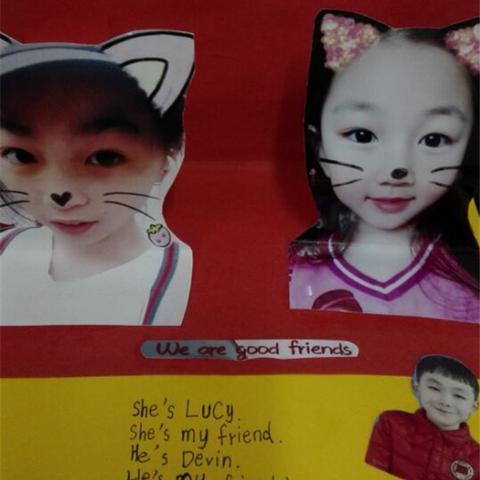 We are good friends
She's Lucy.
She's my friend.
He's Devin.
He's my friend